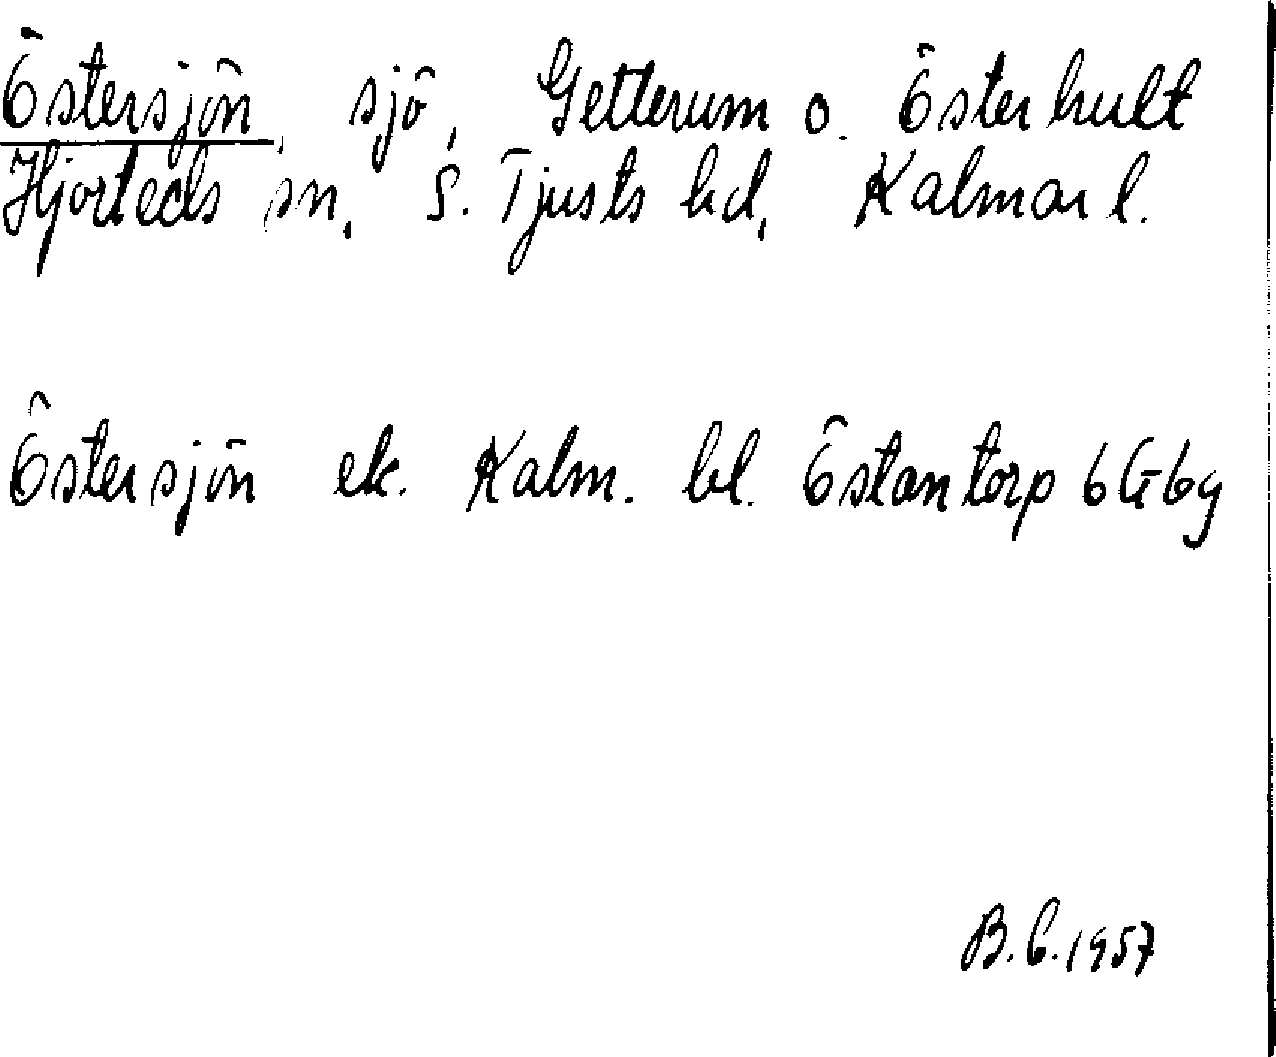 Östersjön, sjö, Getterum o. Österhult
Hjorteds sn, S. Tjusts hd, Kalmar l.
Östersjön ek. Kalm. bl. Östantorp 6G6g
B.C.1957